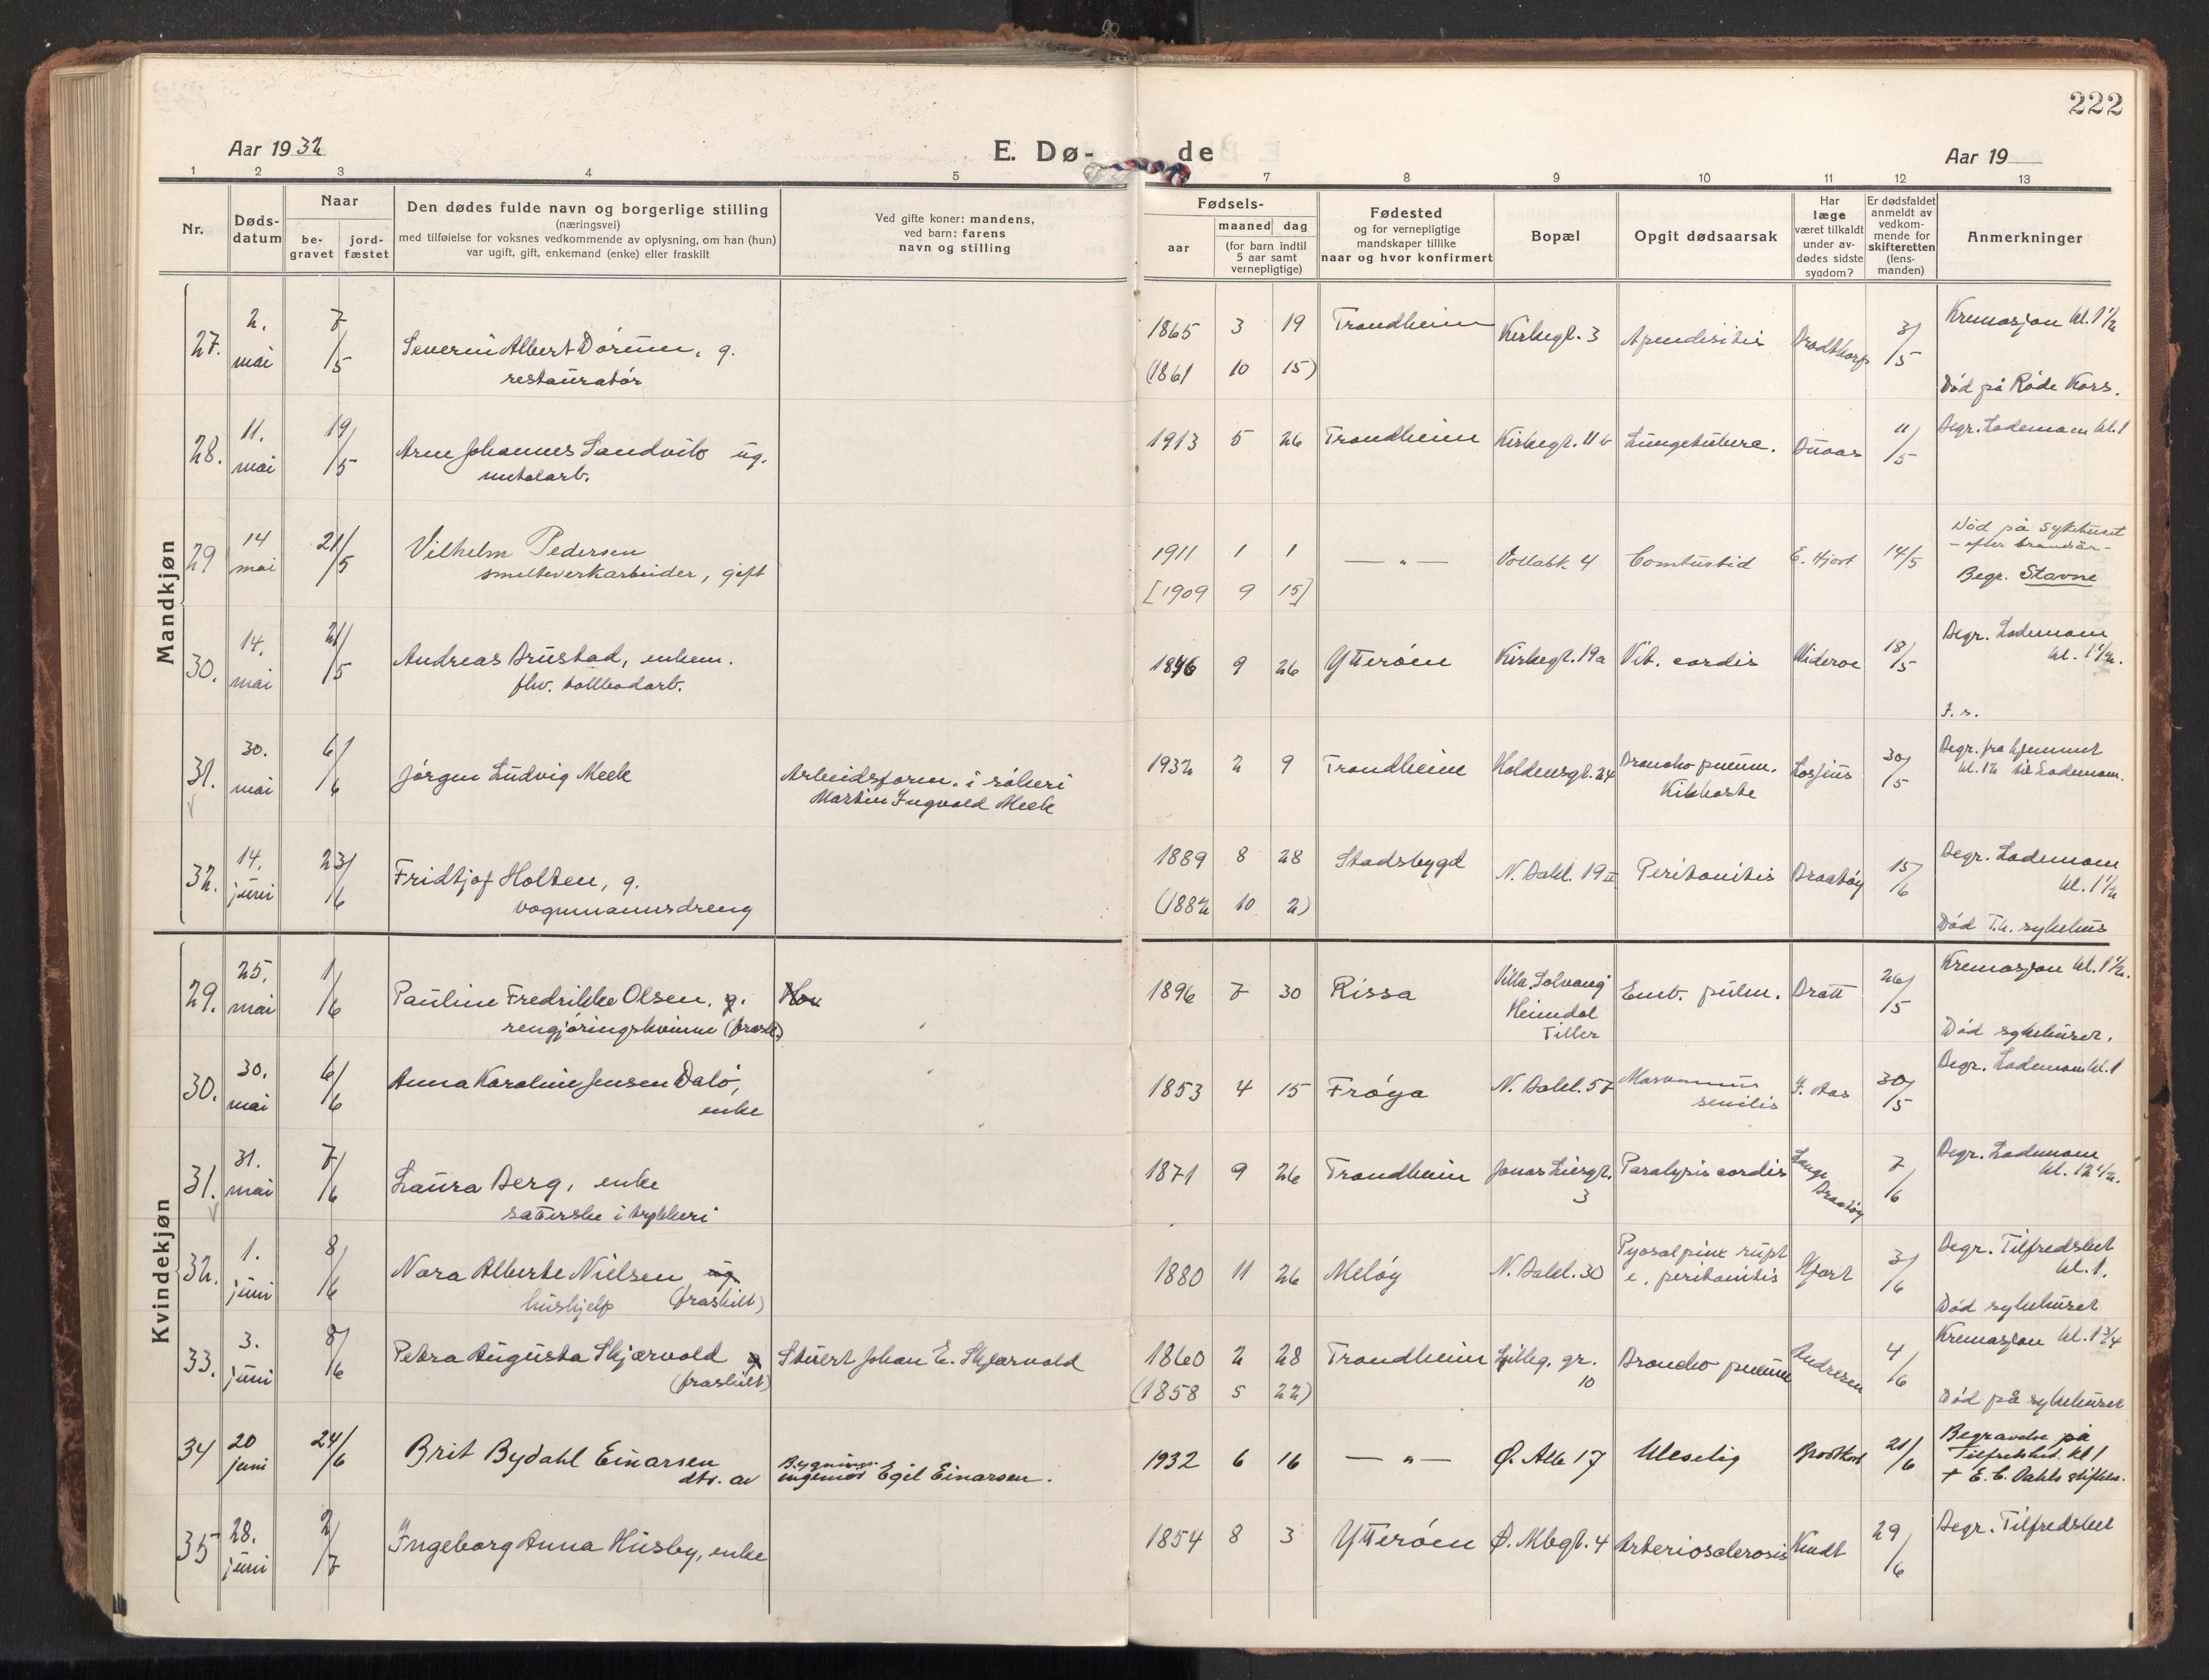 222
Aar 1932
E. Dø-
de
Aar 19
1 2 3 4 5 7 8 9 10 11 12 13
Nr.
Døds-
datum
Naar
be-
gravet
jord-
fæstet
Den dødes fulde navn og borgerlige stilling
(næringsvei)
med tilføielse for voksnes vedkommende av oplysning, om han (hun)
var ugift, gift, enkemand (enke) eller fraskilt
Ved gifte koner: mandens,
ved barn: farens
navn og stilling
Fødsels-
aar
maaned dag
(for barn indtil
5 aar samt
vernepligtige)
Fødested
og for vernepligtige
mandskaper tillike
naar og hvor konfirmert
Bopæl
Opgit dødsaarsak
Har
læge
været tilkaldt
under av-
dødes sidste
sygdom?
Er dødsfaldet
anmeldt av
vedkom-
mende for
skifteretten
(lens-
manden)
Anmerkninger
Mandkjøn
27. 2. mai 7/5 Severin Albert Dørum, g.
restauratør
1865 3 19 Trondheim Kirkegt. 3 Apendisitis Brodtkorp 3/5 Kremasjon kl. 1 1/2
(1861 10 15)
Død på Røde Kors.
28. 11. mai 19/5 Arne Johannes Sandvik ug.
metalarb.
1913 5 26 Trondheim Kirkegt. 11b Lungetuberc. Duaas 11/5 Begr. Lademoen kl. 1
29 14 mai 21/5 Vilhelm Pedersen
smelteverkarbeider, gift
1911 1 1 — " — Vollabk. 4 Comtustid E. Hjort 14/5 Død på Sykehuset
- efter brandsår -
Begr. Stavne
[1909 9 15]
30. 14. mai 21/5 Andreas Brustad, enkem.
fhv. tollbodarb.
1846 9 26 Ytterøen Kirkegt. 19a Vit. cordis Widerøe 18/5 Begr. Lademoen
kl. 1 1/2.
F. s.
31. 30. mai 6/6 Jørgen Ludvig Meek
Arbeidsform. i røkeri
Martin Ingvald Meek
1932 2 9 Trondheim Holdensgt. 24 Broncho pneum.
Kikhoste
Losjius 30/5 Begr. fra hjemmet
kl. 12 til Lademoen.
32. 14. juni 23/6 Fridtjof Holten, g.
vognmannsdreng
1889 8 28 Stadsbygd N. Bakl. 19 II Peritonitis Braatøy 15/6 Begr. Lademoen
kl. 1 1/2
(1882 10 2)
Død T.h. sykehus
Kvindekjøn
29. 25. mai 1/6 Pauline Fredrikke Olsen, g.
rengjøringskvinne (frask.)
1896 7 30 Rissa Villa Solvang
Heimdal
Tiller
Emb. pulm. Bratt 26/5 Kremasjon kl. 1 1/2.
Død sykehuset.
30. 30. mai 6/6 Anna Karoline Jensen Dalø,
enke
1853 4 15 Frøya N. Bakl. 57 Marasmus
senilis
F. Aas 30/5 Begr. Lademoen kl. 1
31. 31. mai 7/6 Laura Berg, enke
satterske i trykkeri
1871 9 26 Trondheim Jonas Liesgt.
3
Paralysis cordis Lange
Braatøy
7/6 Begr. Lademoen
kl. 12 1/2.
32. 1. juni 8/6 Nora Alberte Nielsen, ug
hushjelp (fraskilt)
1880 11 26 Meløy N. Bakl. 30 Pyosalpinx rupt
e, peritonitis
Hjort 3/6 Begr. Tilfredshet
kl. 1.
Død sykehuset
33. 3. juni 8/6 Petra Augusta Skjærvold g
(fraskilt)
Stuert Johan E. Skjærvold
1860 2 28 Trondheim Lilleg. gr.
10
Broncho pneum Andresen 4/6 Kremasjon kl. 1 3/4
(1858 5 22)
Død på sykehuset
34 20 juni 24/6 Brit Bydahl Einarsen
dtr. av
Bygnings-
ingeniør Egil Einarsen.
1932 6 16 — " — Ø. Alle 17 Uleselig Brodtkorb 21/6 Begravelse på
Tilfredshed. kl 1
+ E. C. Dahls stiftelse.
35 28. juni 2/7 Ingeborg Anna Husby, enke
1854 8 3 Ytterøen Ø. Mbgt. 4 Arteriosclerosis Kindt 29/6 Begr. Tilfredshet